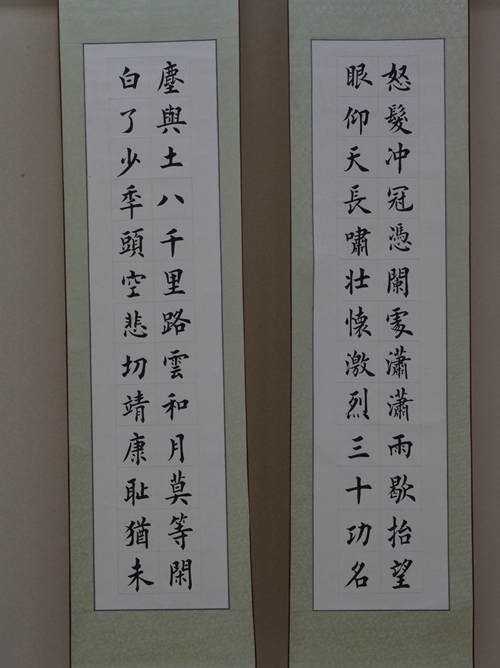 怒髮冲冠憑闌處瀟瀟雨歇抬望
眼仰天長嘯壯懷激烈三十功名
塵與土八千里路雲和月莫等閑
白了少年頭空悲切靖康耻猶未